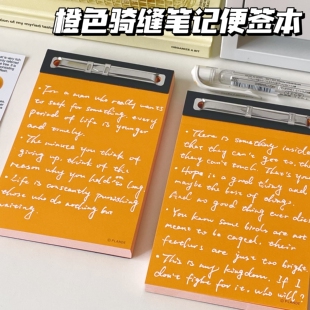 橙色骑缝笔记便签本
• For a man who really wants
to seek for something, every
periods of life is younger
and timely.
• The minute you think of
giving up, think of the
reason why you held on so long.
• Life is constantly punishing
those who do nothing but
waiting.
• There is something inside
that they can't get to, that
they can't touch. That's yours
• Hope is a good thing and
maybe the best of things.
And no good thing ever dies
• You know some birds are not
meant to be caged, their
feathers are just too bright
• This is my kingdom. If I
don't fight for it, who will?